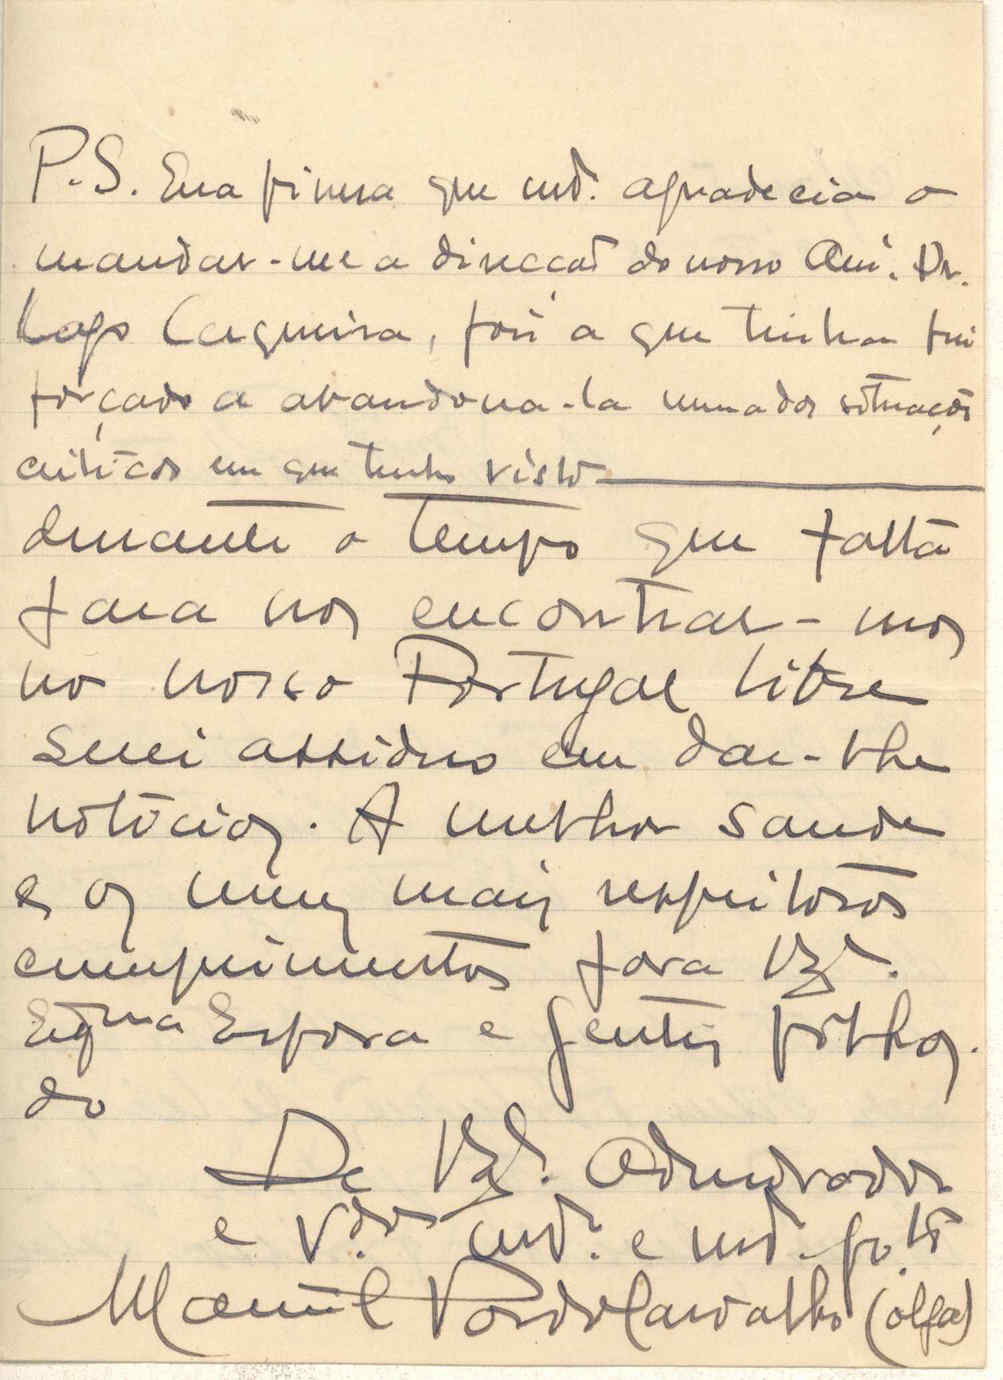 P.S. Era fineza que md. agradecia o
mandar-me a direcção do nosso Am. Dr.
Lago Cerqueira, pois a que tinha fui
forçado a abandona-la numa das situações
criticas em que tenho visto
durante o tempo que falta
para nos encontrar-mos
no nosso Portugal libre
serei assiduo em dar-lhe
noticias. A melhor saude
e os meus mais respeitosos
cumprimentos para
Exma Esposa e gentis filhos.
do
De Admirador
e md. e md.
Manuel Carvalho (olga)